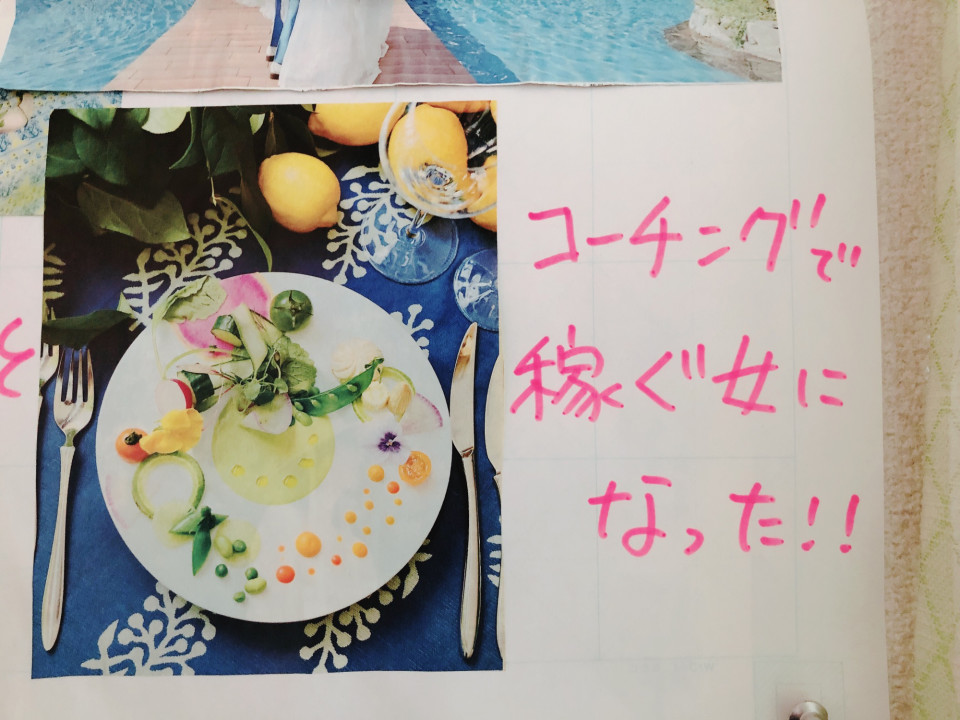 コーチングで
稼ぐ女に
なった!!
そ